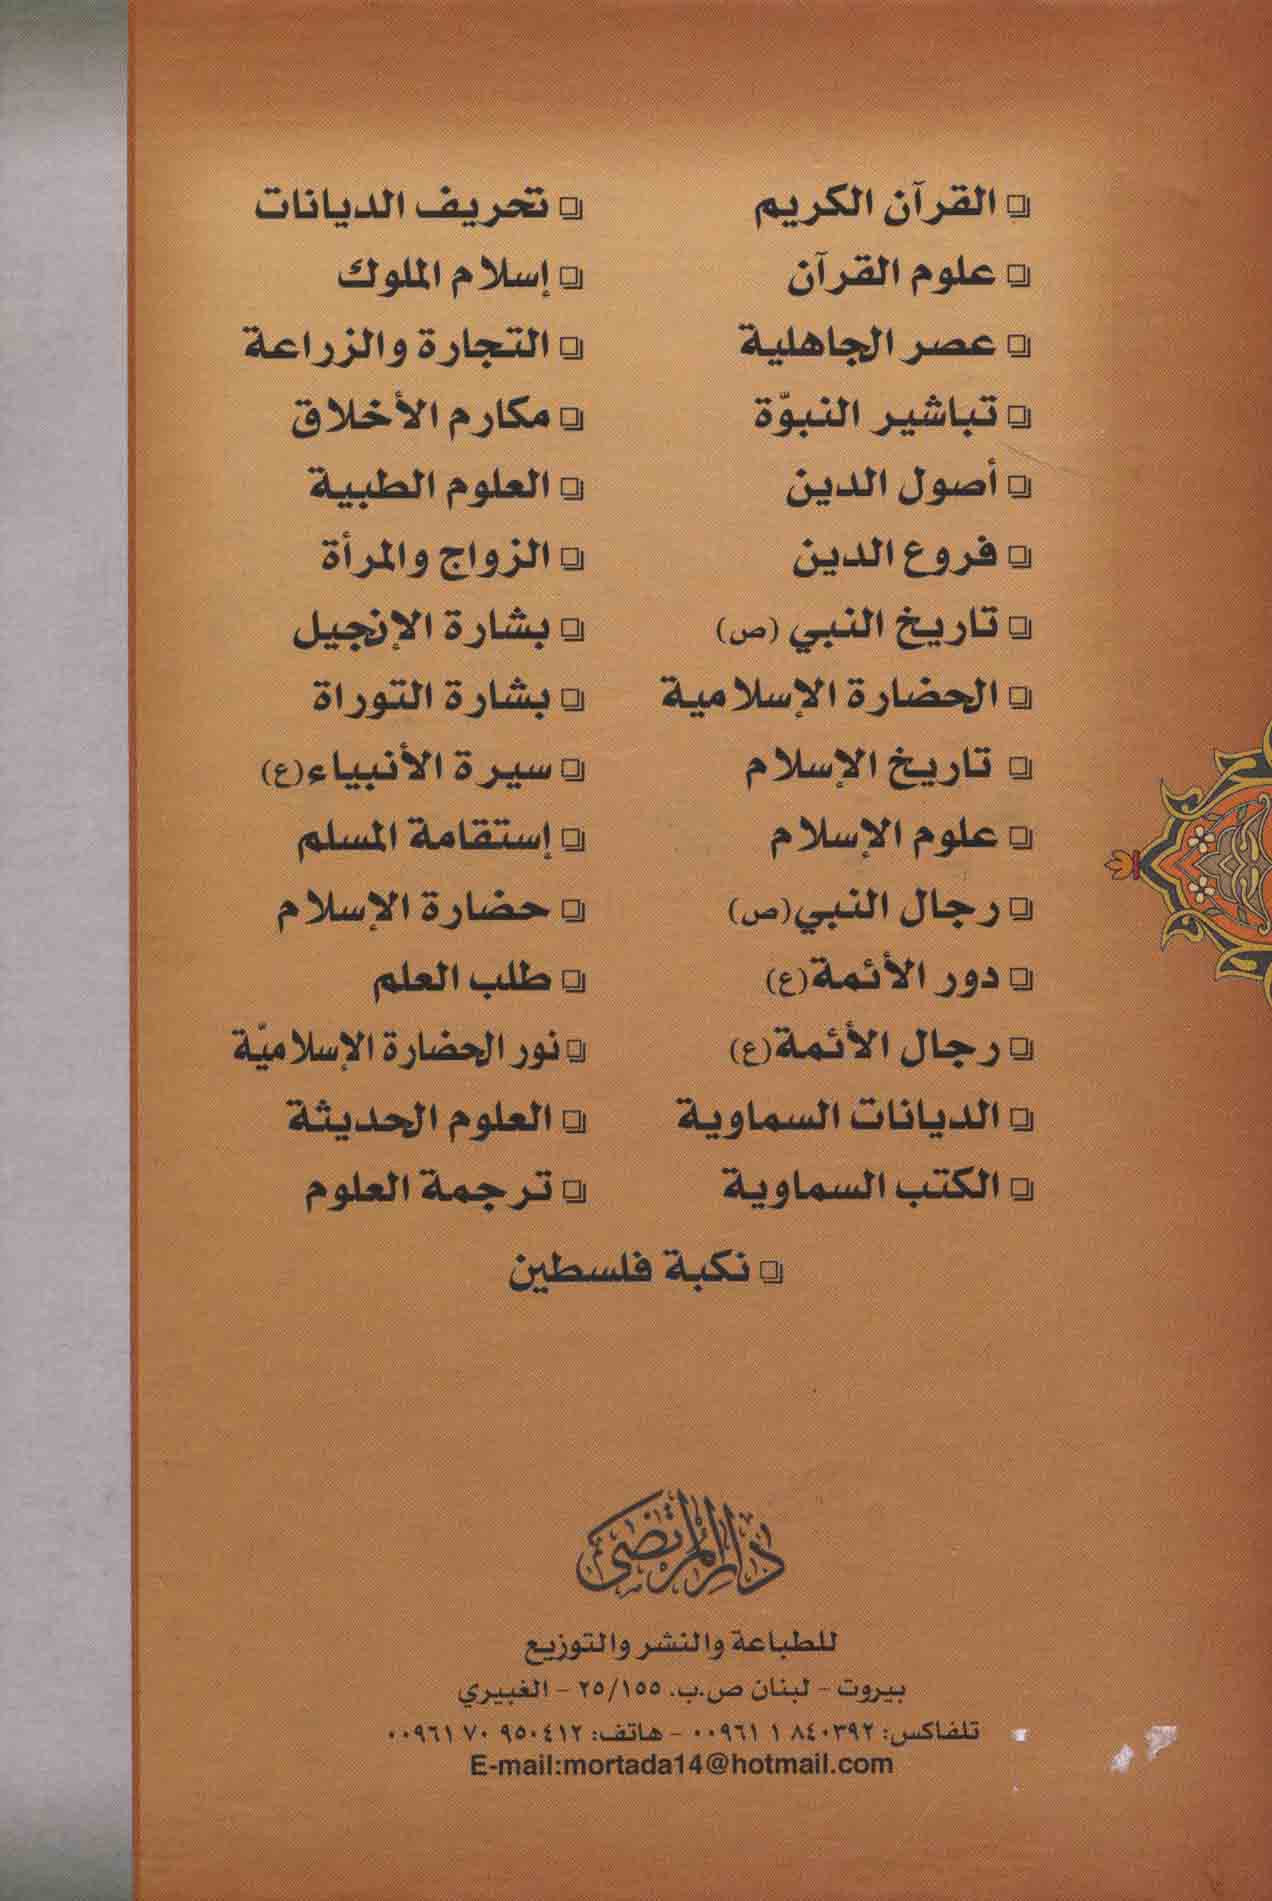 ❏ القرآن الكريم
❏ علوم القرآن
❏ عصر الجاهلية
❏ تباشير النبوّة
❏ أصول الدين
❏ فروع الدين
❏ تاريخ النبي (ص)
❏ الحضارة الإسلامية
❏ تاريخ الإسلام
❏ علوم الإسلام
❏ رجال النبي(ص)
❏ دور الأئمة(ع)
❏ رجال الأئمة(ع)
❏ الديانات السماوية
❏ الكتب السماوية
❏ تحريف الديانات
❏ إسلام الملوك
❏ التجارة والزراعة
❏ مكارم الأخلاق
❏ العلوم الطبية
❏ الزواج والمرأة
❏ بشارة الإنجيل
❏ بشارة التوراة
❏ سيرة الأنبياء(ع)
❏ إستقامة المسلم
❏ حضارة الإسلام
❏ طلب العلم
❏ نور الحضارة الإسلاميّة
❏ العلوم الحديثة
❏ ترجمة العلوم
❏ نكبة فلسطين
دار المرتضى
للطباعة والنشر والتوزيع
بيروت - لبنان ص.ب. ٢٥/١٥٥ - الغبيري
تلفاكس: ٠٠٩٦١ ١ ٨٤٠٣٩٢ - هاتف: ٠٠٩٦١ ٧٠ ٩٥٠٤١٢
E-mail:mortada14@hotmail.com